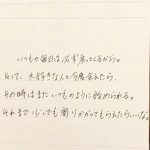 いつもの毎日は必ず戻ってくるから。
そして、大好きな人と今度会えたら、
その時はまた、いつものように始められる。
それまで少しでも寄りかかってもらえたらいいな。